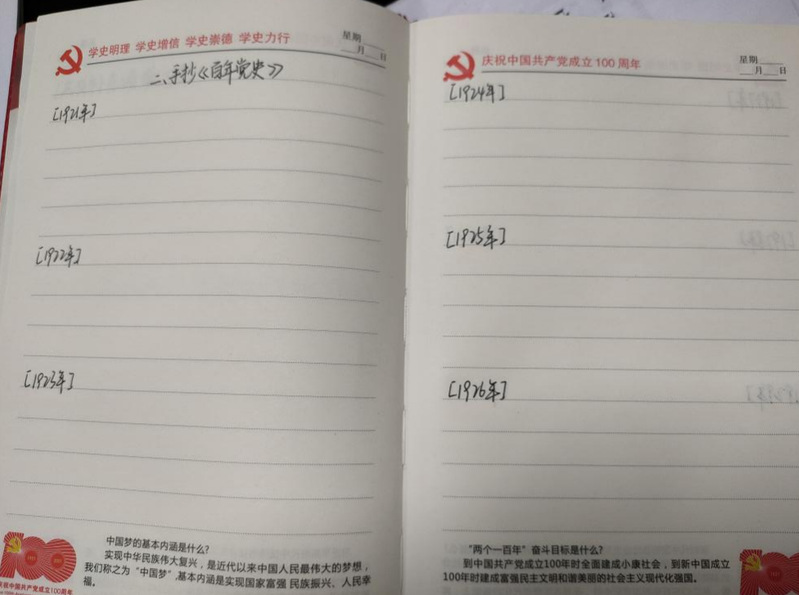 学史明理 学史增信 学史崇德 学史力行
星期
月 日
二、手抄《百年党史》
[1921年]
[1922年]
[1923年]
中国梦的基本内涵是什么?
实现中华民族伟大复兴,是近代以来中国人民最伟大的梦想,
我们称之为“中国梦”,基本内涵是实现国家富强 民族振兴、人民幸
福。
庆祝中国共产党成立100周年
庆祝中国共产党成立100周年
星期
月 日
[1924年]
[1925年]
[1926年]
“两个一百年”奋斗目标是什么?
到中国共产党成立100年时全面建成小康社会,到新中国成立
100年时建成富强民主文明和谐美丽的社会主义现代化强国。